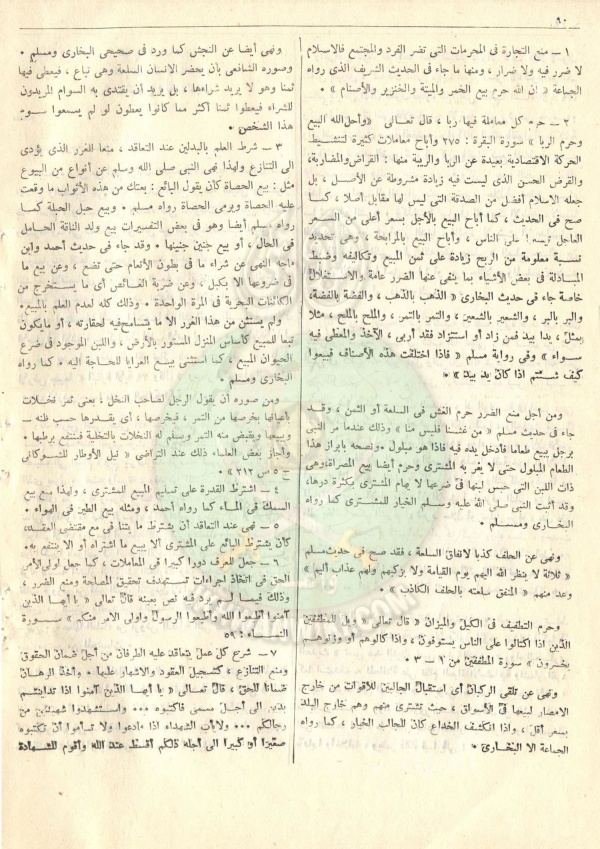 ٩٠
١ – منع التجارة فى المحرمات التى تضر الفرد والمجتمع فالاسلام
لا ضرر فيه ولا ضرار ، ومنها ما جاء فى الحديث الشريف الذى رواه
الجماعة « إن الله حرم بيع الخمر والميتة والخنزير والأصنام » .
٢ – حرم كل معاملة فيها ربا ، قال تعالى « وأحل الله البيع
وحرم الربا » سورة البقرة : ٢٧٥ وأباح معاملات كثيرة لتنشيط
الحركة الاقتصادية بعيدة عن الربا والريبة منها : القراض والمضاربة،
والقرض الحسن الذى ليست فيه زيادة مشروطة عن الأصل ، بل
جعله الاسلام أفضل من الصدقة التى ليس لها مقابل أصلا ، كما
صح فى الحديث ، كما أباح البيع بالأجل بسعر أعلى من السعر
العاجل تيسيرا على الناس ، وأباح البيع بالمرابحة ، وهى تحديد
نسبة معلومة من الربح زيادة على ثمن المبيع وتكاليفه وضبط
المبادلة فى بعض الأشياء بما ينفى عنها الضرر عامة والاستغلال
خاصة جاء فى حديث البخارى « الذهب بالذهب ، والفضة بالفضة،
والبر بالبر ، والشعير بالشعير ، والتمر بالتمر ، والملح بالملح ، مثلا
بمثل ، يدا بيد فمن زاد أو استزاد فقد أربى ، الآخذ والمعطى فيه
سواء » وفى رواية مسلم « فاذا اختلفت هذه الأصناف فبيعوا
كيف شئتم اذا كان يد بيد » .
ومن أجل منع الضرر حرم الغش فى السلعة أو الثمن ، وقد
جاء فى حديث مسلم « من غشنا فليس منا » وذلك عندما مر النبى
برجل يبيع طعاما فأدخل يده فيه فاذا هو مبلول . ونصحه بابراز هذا
الطعام المبلول حتى لا يغر به المشترى وحرم أيضا بيع المصراة وهى
ذات اللبن التى حبس لبنها فى ضرعها لا يهام المشترى بكثرة درها،
وقد أثبت النبى صلى الله عليه وسلم الخيار للمشترى كما رواه
البخارى ومسلم .
ونهى عن الحلف كذبا لانفاق السلعة ، فقد صح فى حديث مسلم
« ثلاثة لا ينظر الله اليهم يوم القيامة ولا يزكيهم ولهم عذاب أليم »
وعد منهم « المنفق سلعته بالحلف الكاذب » .
وحرم التطفيف فى الكيل والميزان « قال تعالى « ويل للمطففين
الذين اذا اكتالوا على الناس يستوفون ، واذا كالوهم أو وزنوهم
يخسرون » سورة المطففين من ١ – ٣ .
ونهى عن تلقى الركبان أى استقبال الجالبين للأقوات من خارج
الامصار لبيعها فى الأسواق ، حيث تشترى منهم وهم خارج البلد
بسعر أقل ، واذا انكشف الخداع كان للجالب الخيار ، كما رواه
الجماعة الا البخارى .
ونهى أيضا عن النجش كما ورد فى صحيحى البخارى ومسلم .
وصوره الشافعى بأن يحضر الانسان السلعة وهى تباع ، فيعطى فيها
ثمنا وهو لا يريد شراءها ، بل يريد أن يقتدى به السوام المريدون
للشراء فيعطوا ثمنا أكثر مما كانوا يعطون لو لم يسمعوا سوم
هذا الشخص .
٣ – شرط العلم بالبدلين عند التعاقد ، منعا للغرر الذى يؤدى
الى التنازع ولهذا نهى النبى صلى الله وسلم عن أنواع من البيوع
مثل : بيع الحصاة كأن يقول البائع : بعتك من هذه الأثواب ما وقعت
عليه الحصاة ويرمى الحصاة رواه مسلم . وبيع حبل الحبلة كما
رواه مسلم أيضا وهو فى بعض التفسيرات بيع ولد الناقة الحامل
فى الحال ، أو بيع جنين جنينها . وقد جاء فى حديث أحمد وابن
ماجه النهى عن شراء ما فى بطون الأنعام حتى تضع ، وعن بيع ما
فى ضروعها الا بكيل ، وعن ضربة الغائص أى ما يستخرج من
الكائنات البحرية فى المرة الواحدة . وذلك كله لعدم العلم بالمبيع.
ولم يستثن من هذا الغرر الا ما يتسامح فيه لحقارته ، أو ما يكون
تبعا للمبيع كأساس المنزل المستور بالأرض ، واللبن الموجود فى ضرع
الحيوان المبيع ، كما استثنى بيع العرايا للحاجة اليه . كما رواه
البخارى ومسلم .
ومن صوره أن يقول الرجل لصاحب النخل : بعنى ثمر نخلات
بأعيانها بخرصها من التمر ، فيخرصها ، أى يقدرها حسب ظنه –
ويبيعها ويقبض منه التمر ويسلم له النخلات بالتخلية فينتفع برطبها .
وأجاز بعض العلماء ذلك عند التراضى « نيل الأوطار للشوكانى
ج ٥ ص ٢١٢ » .
٤ – اشترط القدرة على تسليم المبيع للمشترى ، ولهذا منع بيع
السمك فى الماء كما رواه أحمد ، ومثله بيع الطير فى الهواء .
٥ – نهى عند التعاقد أن يشترط ما يتنافى مع مقتضى العقد،
كأن يشترط البائع على المشترى ألا يبيع ما اشتراه أو الا ينتفع به.
٦ – جعل للعرف دورا كبيرا فى المعاملات ، كما جعل لولى الأمر
الحق فى اتخاذ اجراءات تستهدف تحقيق المصلحة ومنع الضرر ،
وذلك فيما لم يرد فيه نص بعينه قال تعالى « يا أيها الذين
آمنوا أطيعوا الله وأطيعوا الرسول وأولى الأمر منكم » سورة
النساء : ٥٩
٧ – شرع كل عمل يتعاقد عليه الطرفان من أجل ضمان الحقوق
ومنع التنازع ، كتسجيل العقود والاشهار عليها . وأخذ الرهان
ضمانا للحق ، قال تعالى « يا أيها الذين آمنوا اذا تداينتم
بدين الى أجل مسمى فاكتبوه ٠٠٠ واستشهدوا شهيدين من
رجالكم ٠٠٠ ولا يأب الشهداء اذا ما دعوا ولا تسأموا أن تكتبوه
صغيرا أو كبيرا الى أجله ذلكم أقسط عند الله وأقوم للشهادة